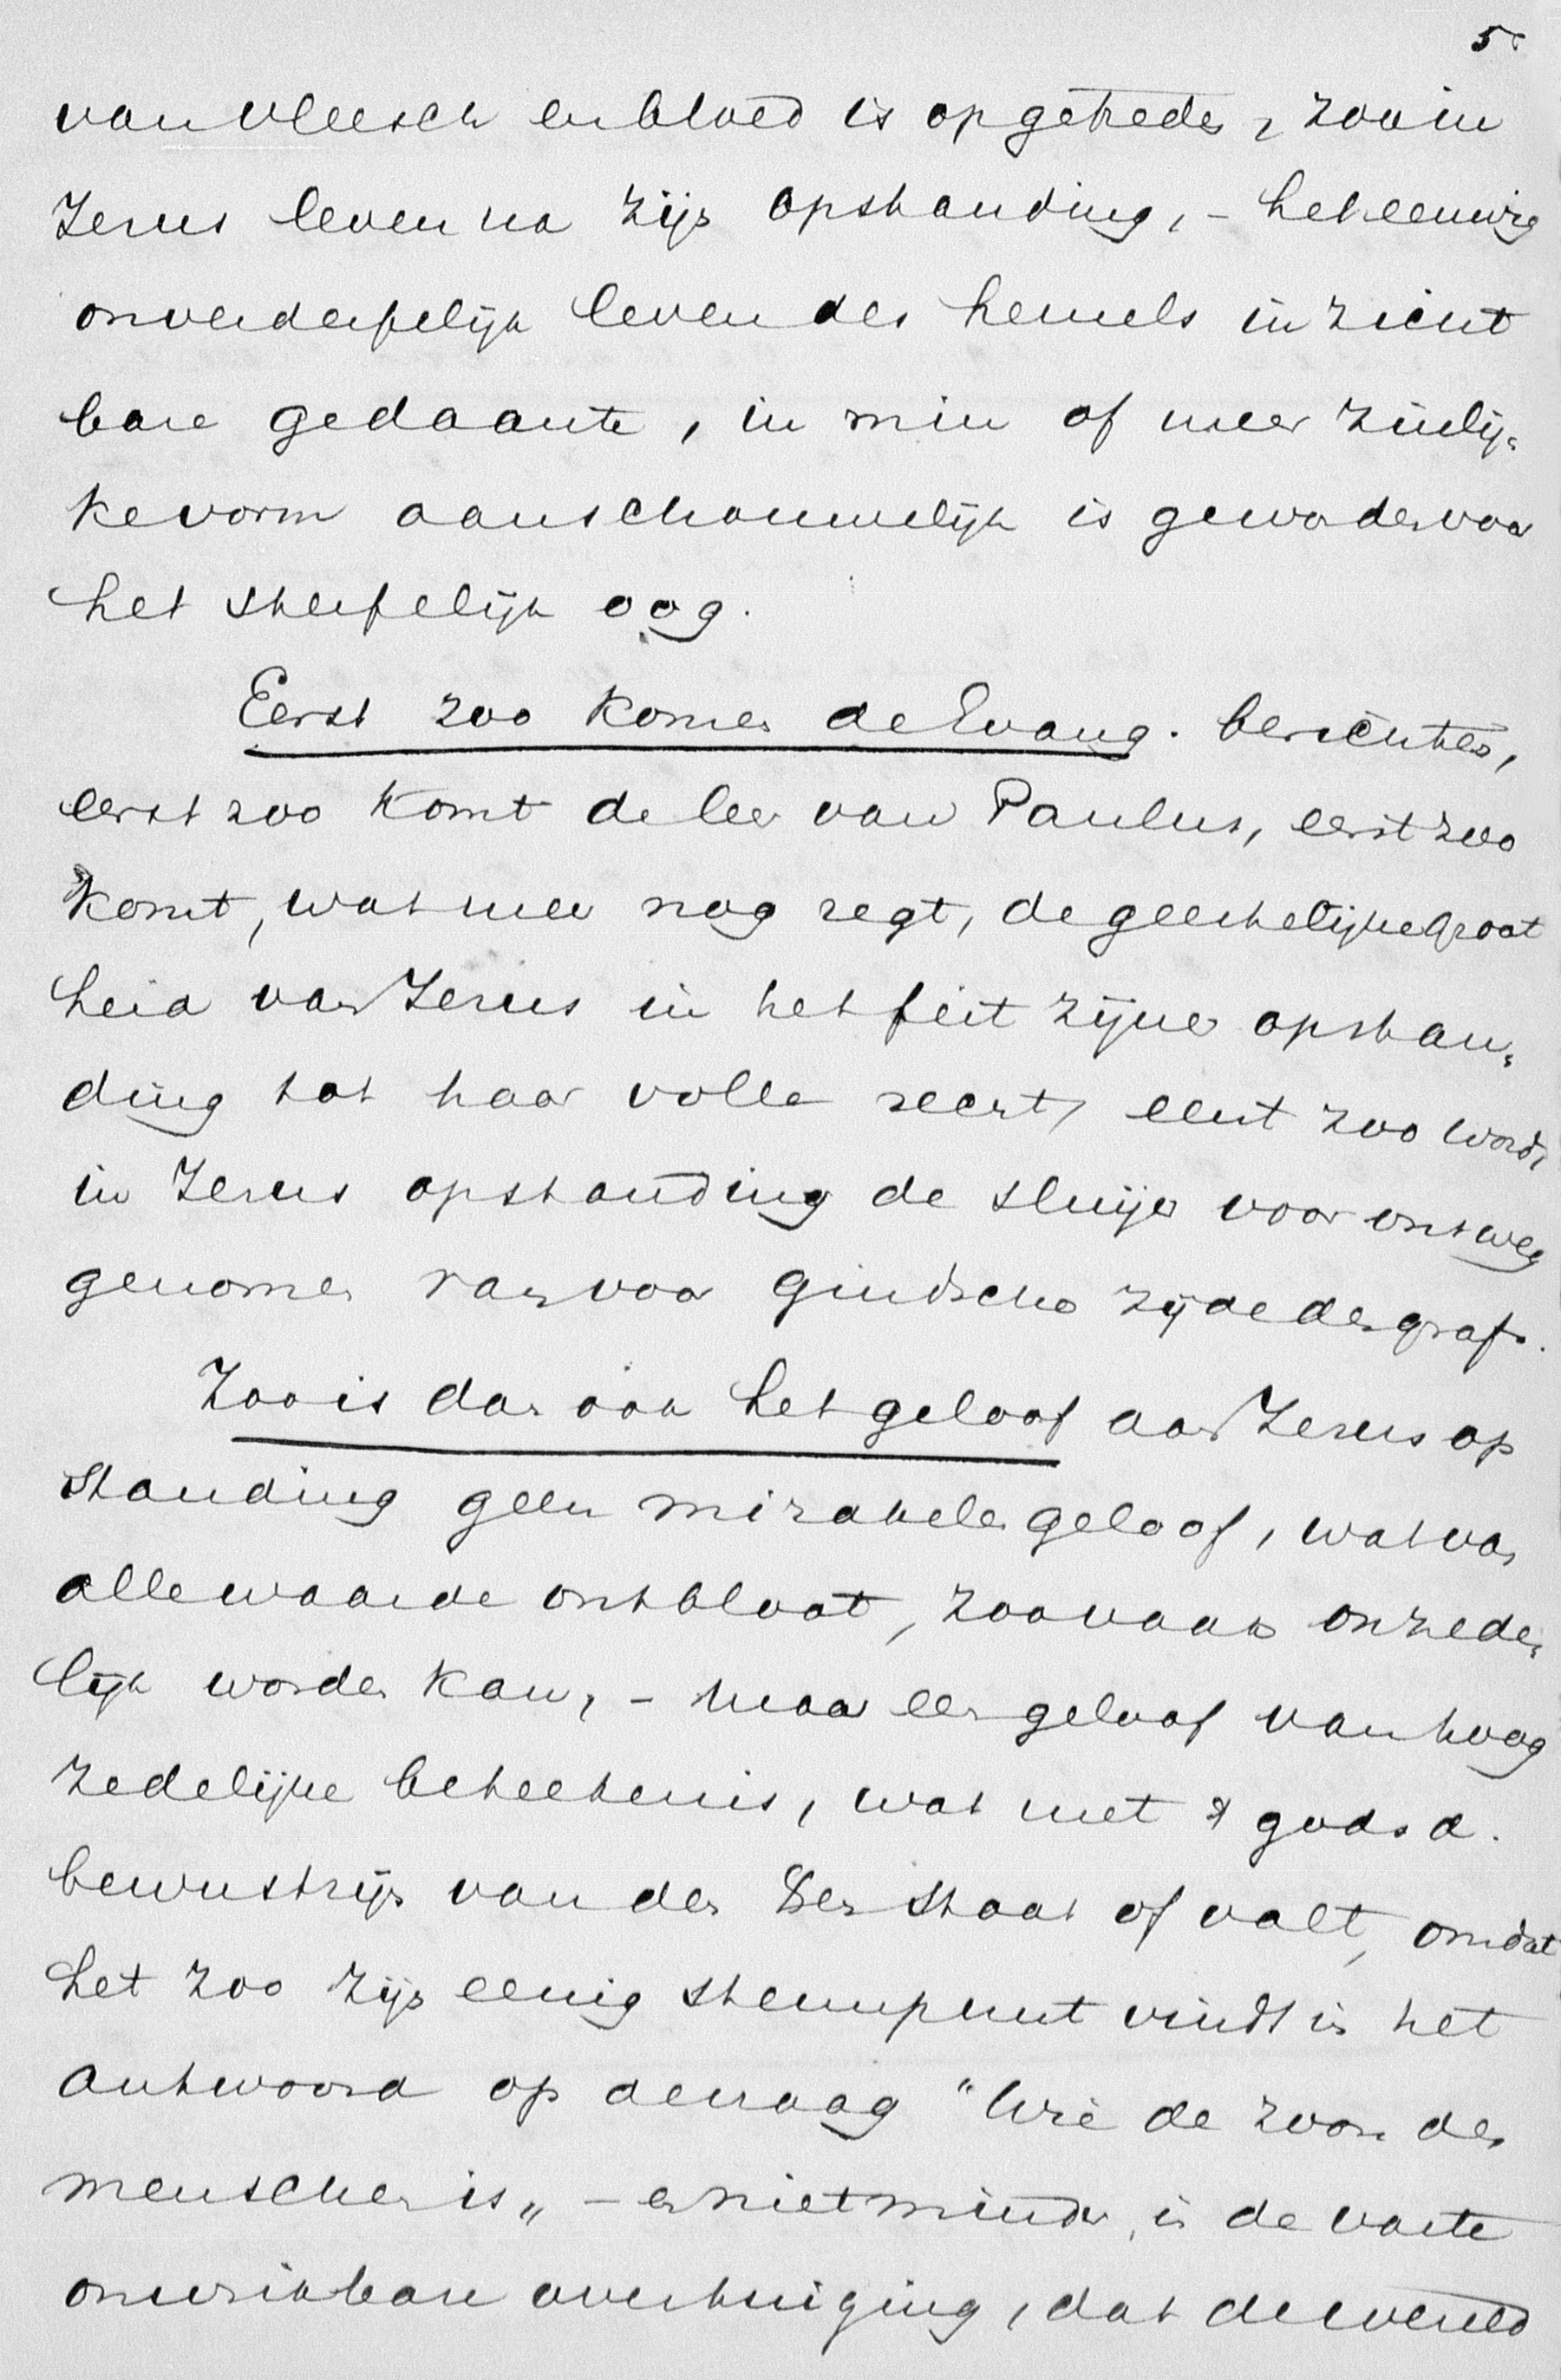 5
van vleesch en bloed is opgetreden, zoo in
Jezus leven na zijn opstanding, - het eeuwig
onverderfelijk leven des hemels in zicht
bare gedaante, in min of meer zinlij-
ke vorm aanschouwelijk is geworden voor
het sterfelijk oog.
Eerst zoo komen de Evang. berichten,
eerst zoo komt de leer van Paulus, eerst zoo
komt, wat meer nog zegt, de geestelijke groot
heid van Jezus in het feit zijner opstan-
ding tot haar volle recht, eerst zoo wordt
in Jezus opstanding de sluijer voor ons weg
genomen van voor gindsche zijde des grafs.
Zoo is dan ook het geloof aan Jezus op
standing geen mirakelen geloof, wat van
alle waarde ontbloot, zoo vaak onzede-
lijk worden kan, - maar een geloof van hoog
zedelijke beteekenis, wat met godsd.
bewustzijn van den staat of valt, omdat
het zoo zijn eenig steunpunt vindt in het
antwoord op de vraag "Wie de zoon des
menschen is" - en niet minder, in de vaste
onwrikbare overtuiging, dat de wereld